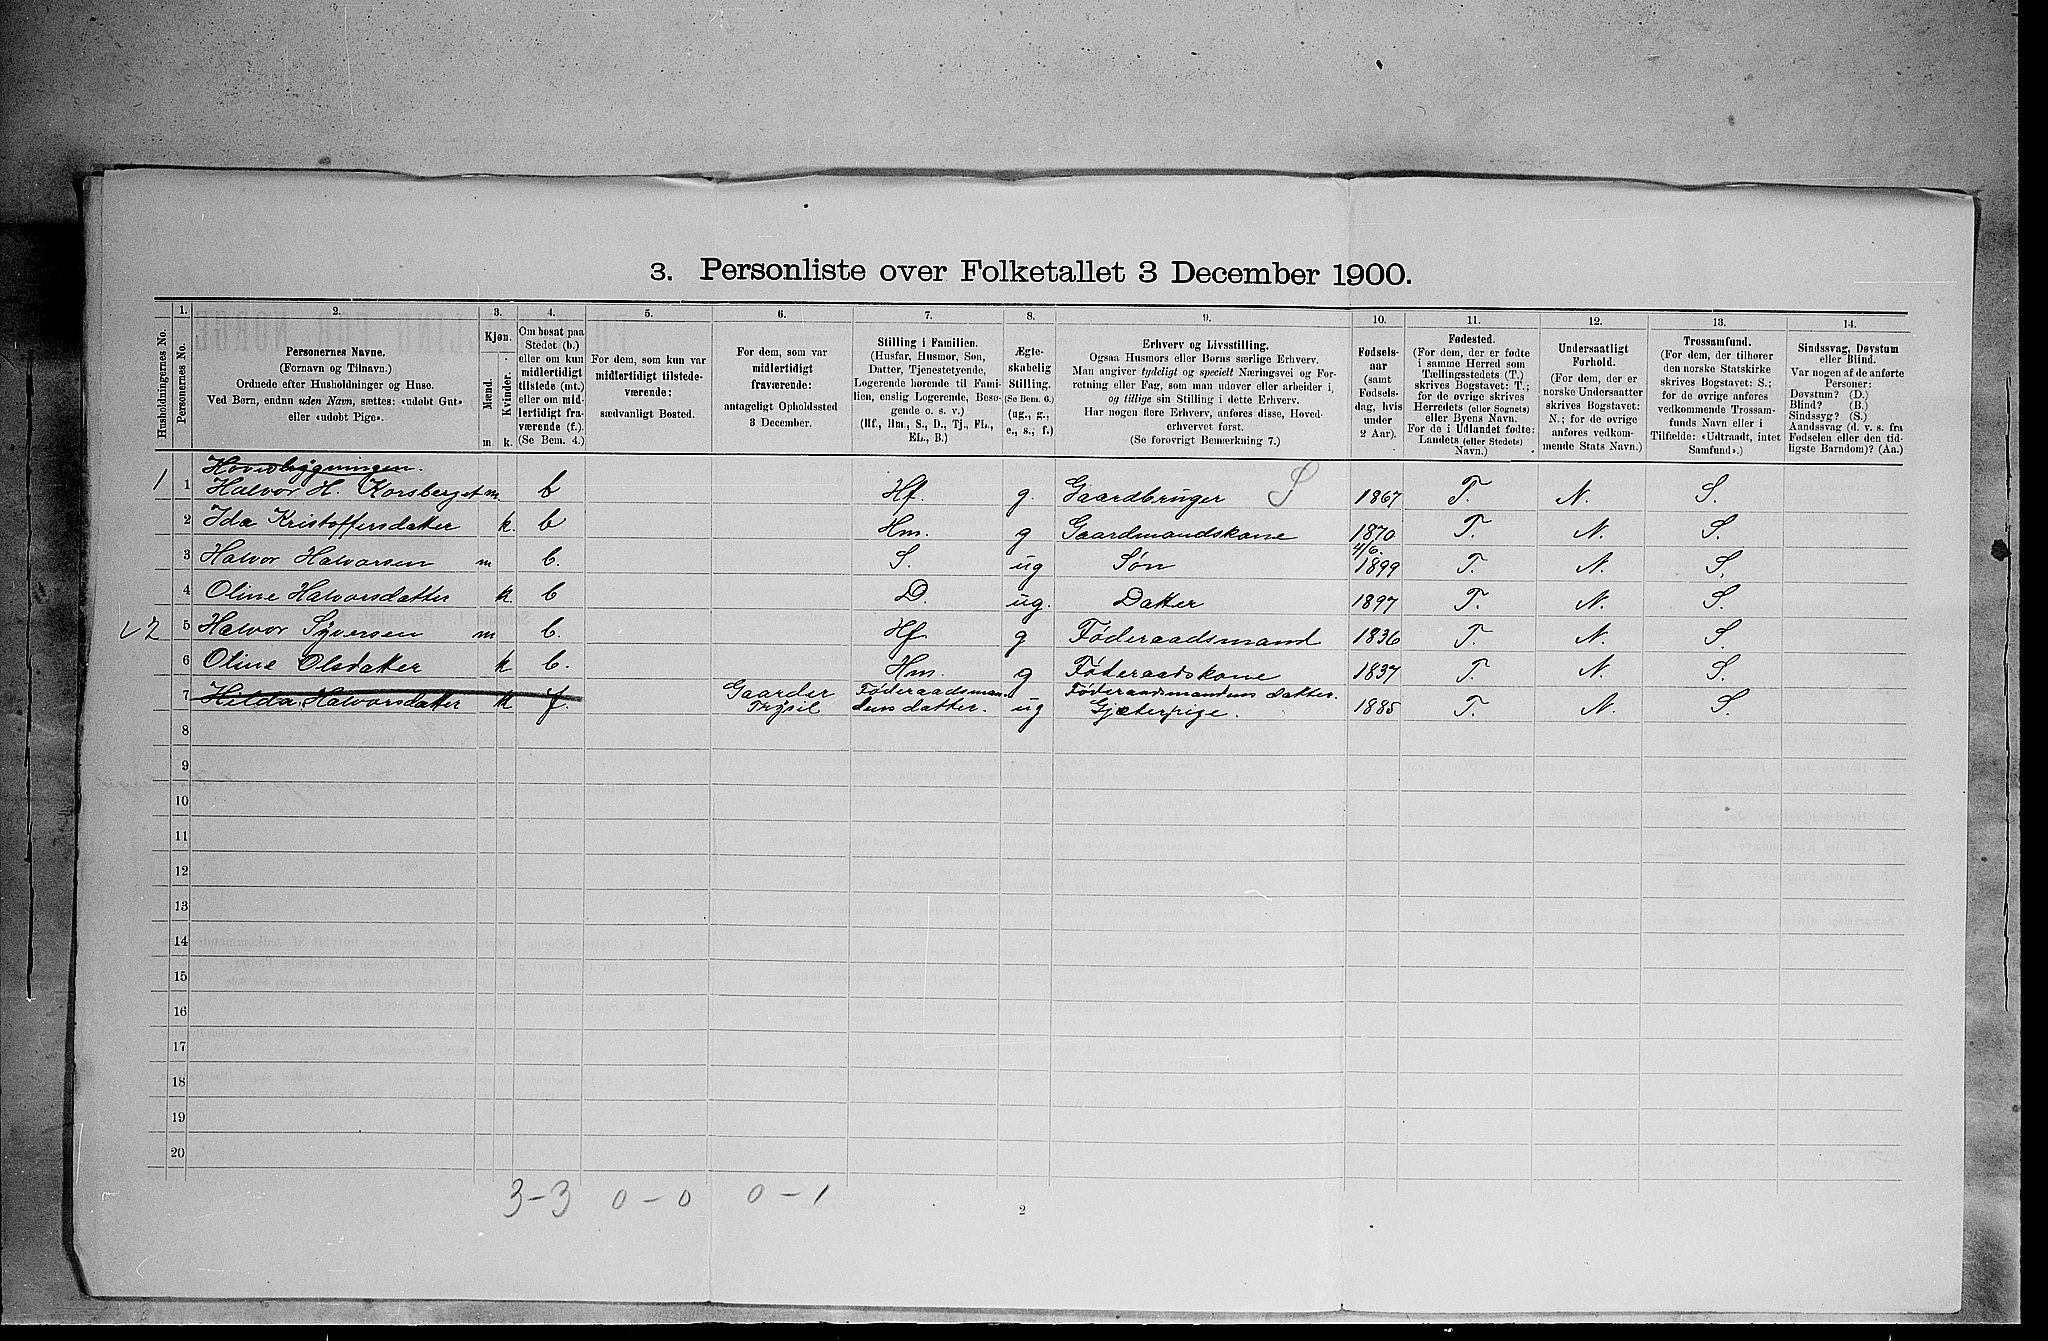 3. Personliste over Folketallet 3 December 1900.
Husholdningernes No.
1.
Personernes No.
2.
Personernes Navne.
(Fornavn og Tilnavn.)
Ordnede efter Husholdninger og Huse.
Ved Børn, endnu uden Navn, sættes: «udøbt Gut»
eller «udøbt Pige».
3.
Kjøn.
Mænd.
Kvinder.
m.
k.
4.
Om bosat paa
Stedet (b.)
eller om kun
midlertidigt
tilstede (mt.)
eller om mid-
lertidigt fra-
værende (f.).
(Se Bem. 4.)
5.
For dem, som kun var
midlertidigt tilstede-
værende:
sædvanligt Bosted.
6.
For dem, som var
midlertidigt
fraværende:
antageligt Opholdssted
3 December.
7.
Stilling i Familien.
(Husfar, Husmor, Søn,
Datter, Tjenestetyende,
Logerende hørende til Fami-
lien, enslig Logerende, Besø-
gende o. s. v.)
(Hf., Hm., S., D., Tj., FL.,
EL., B.)
8.
Ægte-
skabelig
Stilling.
(Se Bem. 6.)
(ug., g.,
e., s., f.)
9.
Erhverv og Livsstilling.
Ogsaa Husmors eller Børns særlige Erhverv.
Man angiver tydeligt og specielt Næringsvei og For-
retning eller Fag, som man udøver eller arbeider i,
og tillige sin Stilling i dette Erhverv.
Har nogen flere Erhverv, anføres disse, Hoved-
erhvervet først.
(Se forøvrigt Bemærkning 7.)
10.
Fødsels-
aar
(samt
Fødsels-
dag, hvis
under
2 Aar).
11.
Fødested.
(For dem, der er fødte
i samme Herred som
Tællingsstedets (T.)
skrives Bogstavet: T.;
for de øvrige skrives
Herredets (eller Sognets)
eller Byens Navn.
For de i Udlandet fødte:
Landets (eller Stedets)
Navn.)
12.
Undersaatligt
Forhold.
(For dem, der er
norske Undersaatter
skrives Bogstavet:
N.; for de øvrige
anføres vedkom-
mende Stats Navn.)
13.
Trossamfund.
(For dem, der tilhører
den norske Statskirke
skrives Bogstavet: S.;
for de øvrige anføres
vedkommende Trossam-
funds Navn eller i
Tilfælde: «Udtraadt, intet
Samfund».)
14.
Sindssvag, Døvstum
eller Blind.
Var nogen af de anførte
Personer:
Døvstum? (D.)
Blind? (B.)
Sindssyg? (S.)
Aandssvag (d. v. s. fra
Fødselen eller den tid-
ligste Barndom)? (Aa.)
Hovedbygningen.
1 1 Halvor H. Korsberget m. b Hf. g. Gaardbruger S 1867 T. N. S.
2 Ida Kristoffersdatter k. b Hm. g Gaardmandskone 1870 T. N. S.
3 Halvor Halvorsen m b. S. ug Søn 4/6. 1899 T. N. S.
4 Oline Halvorsdatter k. b D. ug. Datter 1897 T. N. S.
2 5 Halvor Syversen m b. Hf g Føderaadsmand 1836 T. N. S.
6 Oline Olsdatter k b. Hm. g Føderaadskone 1837 T. N. S.
7 Hilda Halvorsdatter k f. Gaarder Trysil Føderaadsman- dens datter. ug Føderaadsmandens datter. Gjæterpige. 1885 T. N. S.
8
9
10
11
12
13
14
15
16
17
18
19
20
3-3 0-0 0-1
2